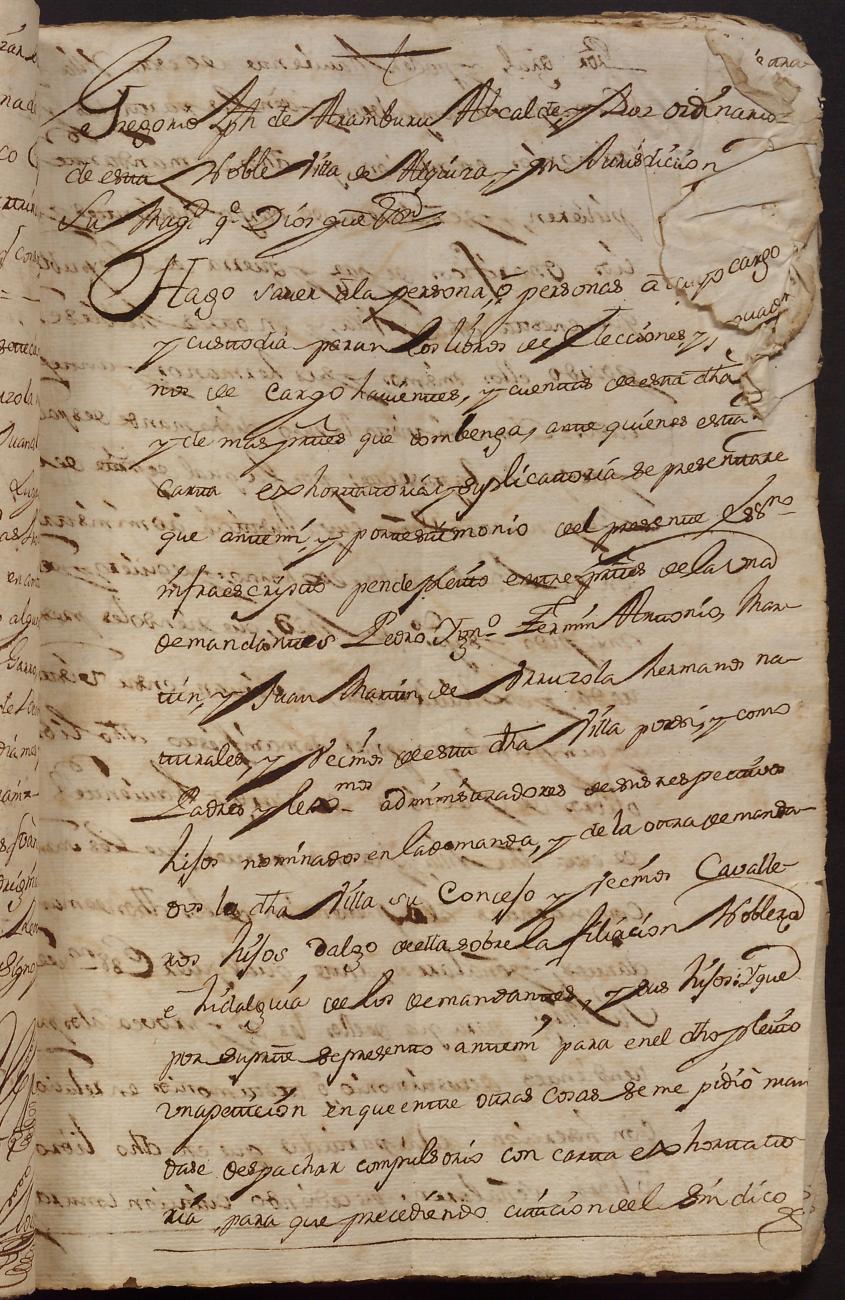 Gregorio Jph de Aramburu Alcalde, y Juez ordinario
de esta Noble Villa de Alquiza, y su Jurisdicion
Su Magd. qe. Dios gue
Hago saver â la persona, ô personas â cuyo cargo
y custodia paran los libros de Elecciones, y
nos de cargo havientes, y cuentas de esta dha
y de mas partes que combenga, ante quienes esta
carta exhortatoria y suplicatoria se presentare
que antemi, y por testimonio del presente essno
infraescripto pende pleito entre partes de la una
demandantes Pedro Ygno. Fermin Antonio, Mar
tin, y Juan Martin, de Yruzola hermanos na-
turales, y vecinos de esta dha Villa por si, y como
Padres, y lexmos administradores de sus respectivos
hijos nominados en la demanda, y de la otra demanda-
dos la dha Villa su Concejo y vecinos Cavalle-
ros hijos dalgo de ella sobre la filiacion Nobleza
e hidalguia de los demandantes, y sus hijos: Y que
por su parte se presento antemi para en el dho pleito
una peticion en que entre otras cosas se me pidiò man
dase despachar compulsorio con carta exhortato-
ria para que precediendo citacion del Sindico